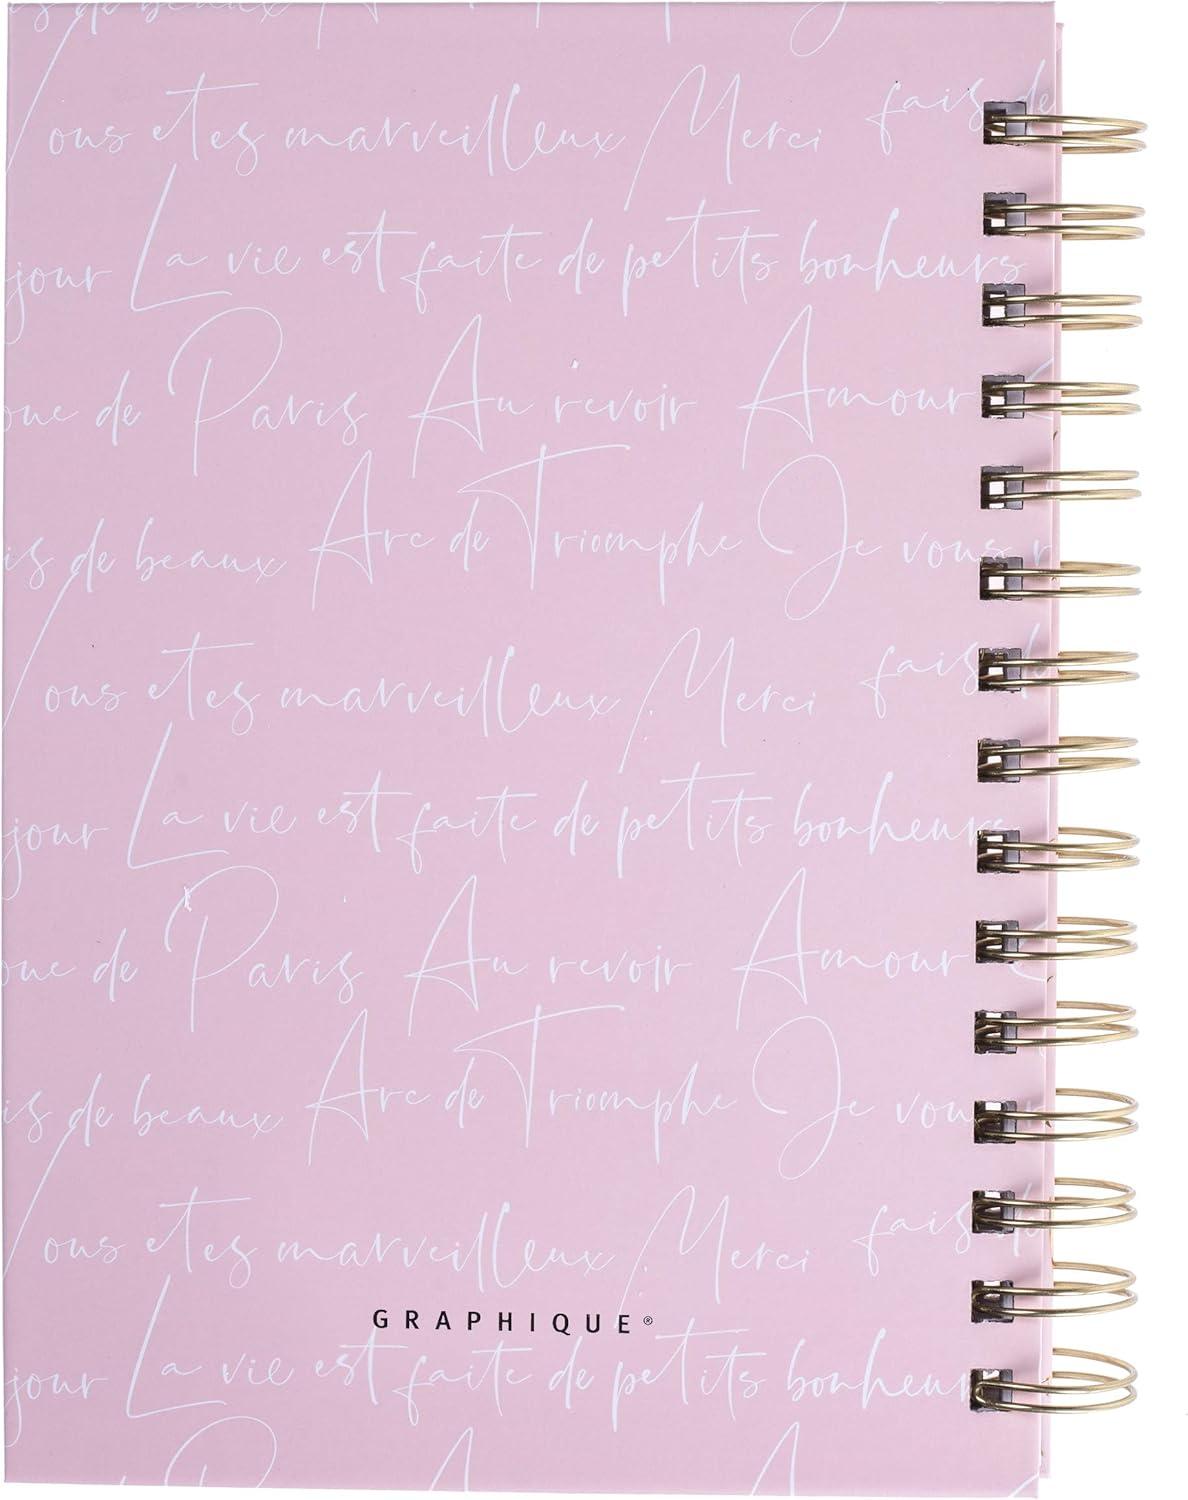 fais de beaux Au
Vous etes marveilleux Merci fais de
jour La vie est faite de petits bonheurs
oue de Paris Au revoir Amour
is de beaux Arc de Triomphe Je vous r
Vous etes marveilleux Merci fais de
jour La vie est faite de petits bonheurs
oue de Paris Au revoir Amour
is de beaux Arc de Triomphe Je vous
Vous etes marveilleux Merci fais de
GRAPHIQUE®
jour La vie est faite de petits bonheurs